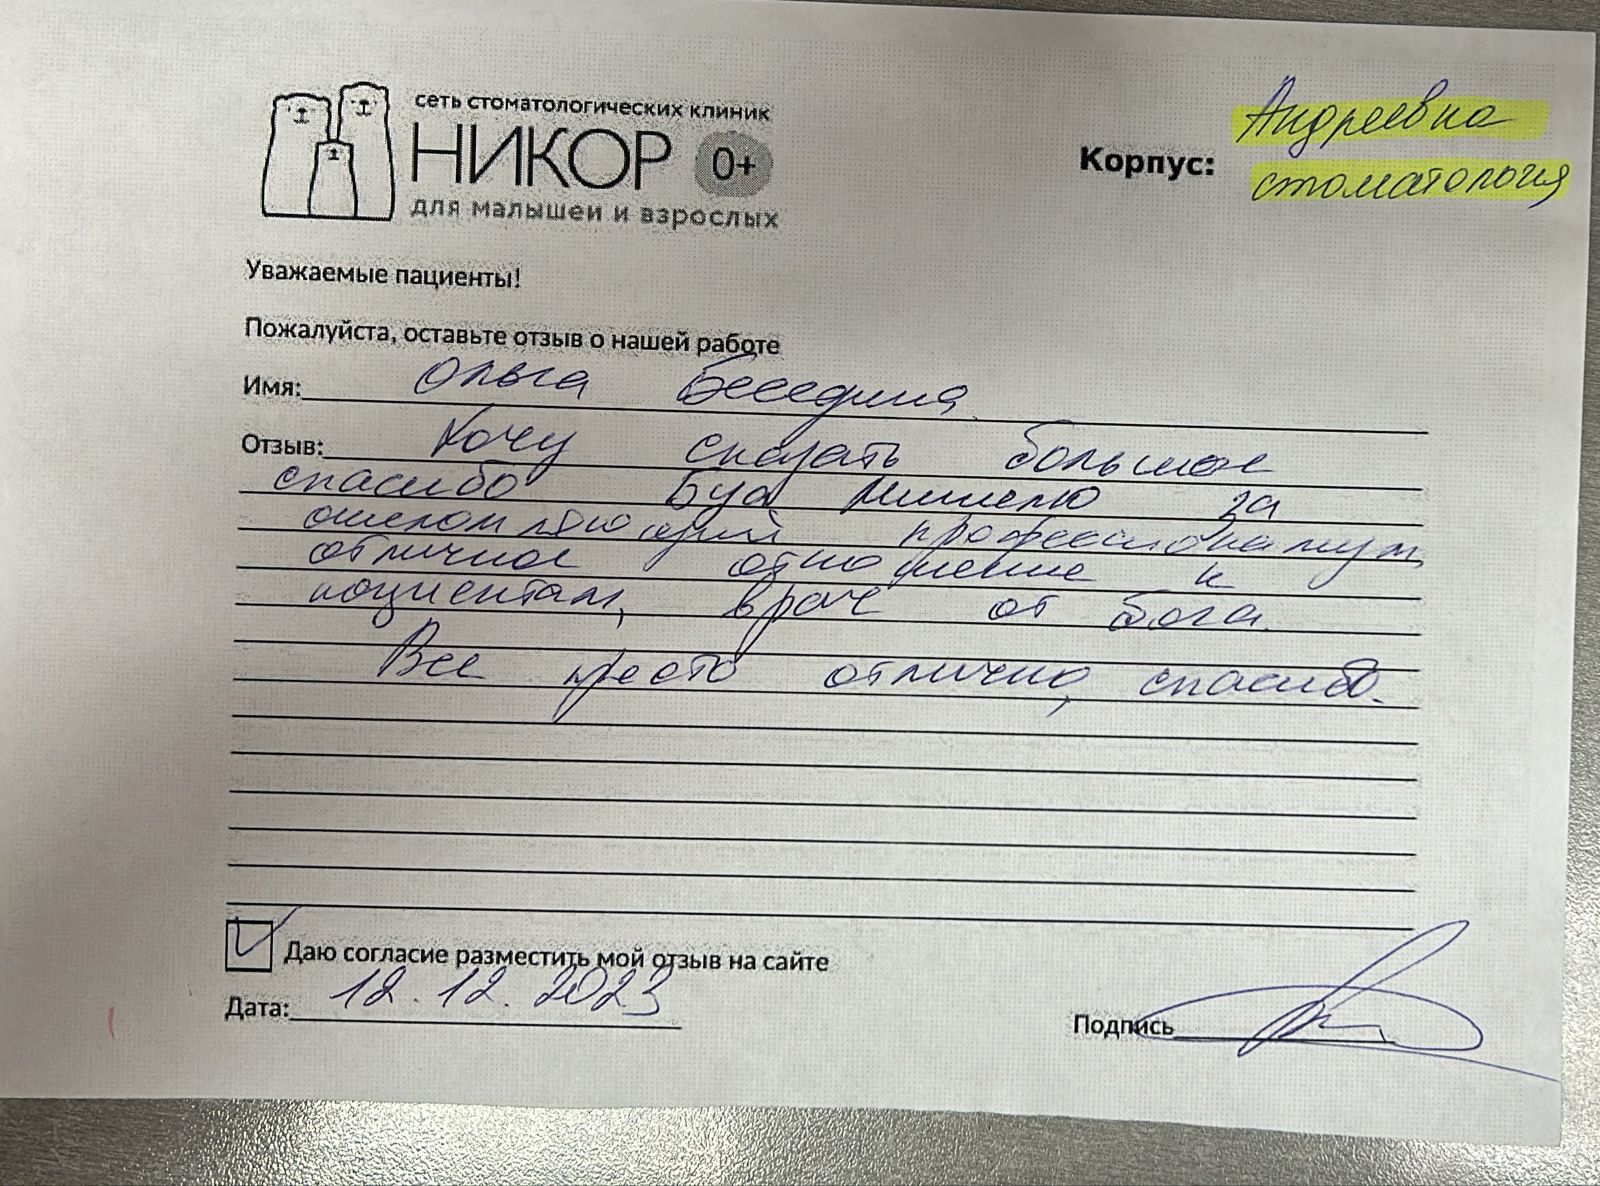 сеть стоматологических клиник
НИКОР 0+
для малышей и взрослых
Корпус: Андреевка
стоматология
Уважаемые пациенты!
Пожалуйста, оставьте отзыв о нашей работе
Имя: Ольга Беседина
Отзыв: Хочу сказать большое
спасибо Буа Мишелю за
ошеломляющий профессионализм,
отличное отношение к
пациентам, врач от бога.
Все просто отлично, спасибо.
Даю согласие разместить мой отзыв на сайте
Дата: 12.12.2023
Подпись